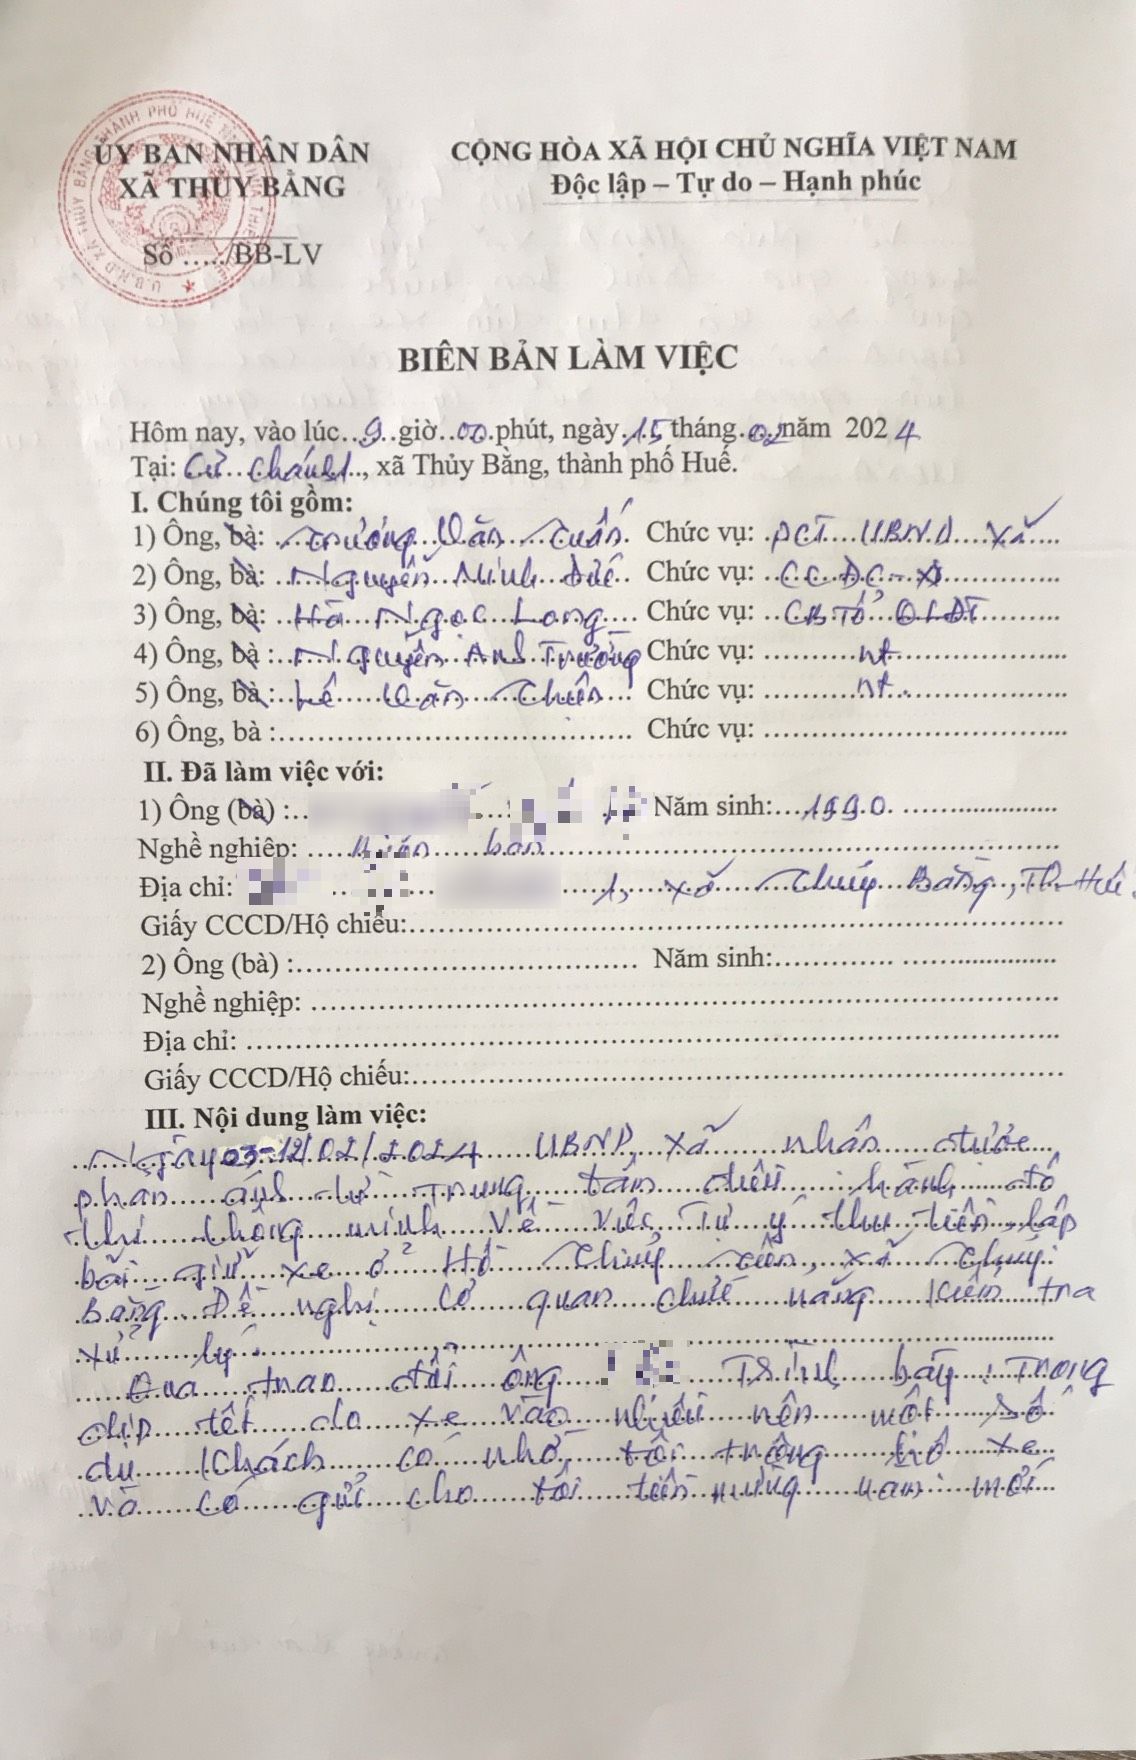 ỦY BAN NHÂN DÂN
XÃ THỦY BẰNG
Số ...../BB-LV
CỘNG HÒA XÃ HỘI CHỦ NGHĨA VIỆT NAM
Độc lập – Tự do – Hạnh phúc
U.B.N.D XÃ THỦY BẰNG THÀNH PHỐ HUẾ
BIÊN BẢN LÀM VIỆC
Hôm nay, vào lúc 9 giờ 00 phút, ngày 15 tháng 02 năm 2024
Tại: Cư Chánh 1, xã Thủy Bằng, thành phố Huế.
I. Chúng tôi gồm:
1) Ông, bà: Trương Văn Tuấn Chức vụ: PCT UBND xã
2) Ông, bà: Nguyễn Minh Đức Chức vụ: CCĐC-X
3) Ông, bà: Hà Ngọc Long Chức vụ: CB Tổ QLĐT
4) Ông, bà: Nguyễn Anh Trường Chức vụ: nt
5) Ông, bà: Lê Văn Chiến Chức vụ: nt.
6) Ông, bà : Chức vụ:
II. Đã làm việc với:
1) Ông (bà) : Năm sinh: 1990
Nghề nghiệp: bán
Địa chỉ: 1, xã Thủy Bằng, TP Huế.
Giấy CCCD/Hộ chiếu:
2) Ông (bà) : Năm sinh:
Nghề nghiệp:
Địa chỉ:
Giấy CCCD/Hộ chiếu:
III. Nội dung làm việc:
Ngày 12/02/2024 UBND xã nhận được
phản ánh từ Trung tâm điều hành đô
thị thông minh về việc Tự ý thu tiền, lập
bãi giữ xe ở Hồ Thủy Tiên, xã Thủy
Bằng. Đề nghị cơ quan chức năng kiểm tra
xử lý.
Qua trao đổi ông Trình bày: Trong
dịp tết do xe vào nhiều nên một số
du khách có nhờ tôi trông hộ xe
và có gửi cho tôi tiền mừng năm mới